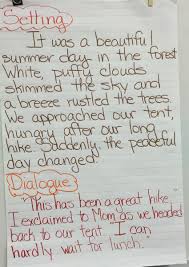 Setting
It was a beautiful
summer day in the forest
White, puffy clouds
skimmed the sky and
a breeze rustled the trees.
We approached our tent,
hungry after our long
hike. Suddenly, the peaceful
day changed.
Dialogue
"This has been a great hike,"
I exclaimed to Mom as we headed
back to our tent. "I can
hardly wait for lunch."